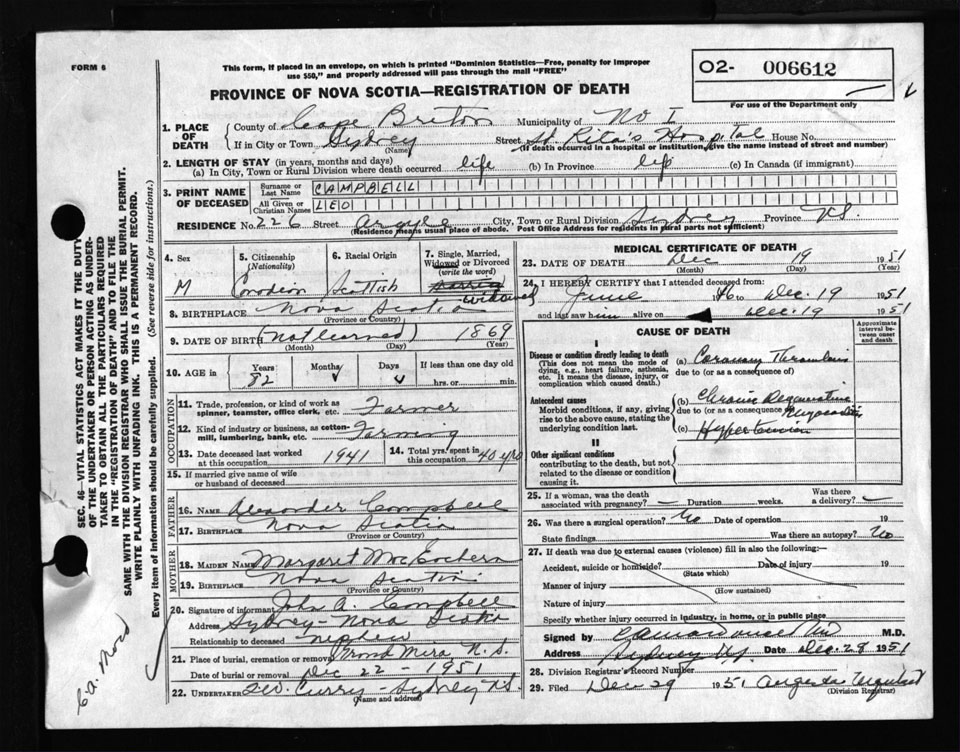 FORM 6
This form, if placed in an envelope, on which is printed "Dominion Statistics—Free, penalty for improper
use $50," and properly addressed will pass through the mail "FREE"
PROVINCE OF NOVA SCOTIA—REGISTRATION OF DEATH
O2- 006612
For use of the Department only
1. PLACE OF DEATH
County of Cape Breton Municipality of No I
If in City or Town Sydney (Name) Street St. Rita's Hospital House No.
(If death occurred in a hospital or institution, give the name instead of street and number)
2. LENGTH OF STAY (in years, months and days)
(a) In City, Town or Rural Division where death occurred life (b) In Province life (c) In Canada (if immigrant)
3. PRINT NAME OF DECEASED
Surname or Last Name CAMPBELL
All Given or Christian Names LEO
RESIDENCE No. 226 Street Argyle City, Town or Rural Division Sydney Province N.S.
(Residence means usual place of abode. Post Office Address for residents in rural parts not sufficient)
4. Sex M
5. Citizenship (Nationality) Canadian
6. Racial Origin Scottish
7. Single, Married, Widowed or Divorced (write the word) Widowed
8. BIRTHPLACE Nova Scotia
(Province or Country)
9. DATE OF BIRTH (Not learned) 1869
(Month) (Day) (Year)
10. AGE in Years 82 Months Days If less than one day
hrs. or min.
OCCUPATION
11. Trade, profession, or kind of work as spinner, teamster, office clerk, etc. Farmer
12. Kind of industry or business, as cotton-mill, lumbering, bank, etc. Farming
13. Date deceased last worked at this occupation 1941
14. Total yrs. spent in this occupation 40 yrs
15. If married give name of wife or husband of deceased
FATHER
16. Name Alexander Campbell
17. Birthplace Nova Scotia
(Province or Country)
MOTHER
18. Maiden Name Margaret MacEachern
19. Birthplace Nova Scotia
(Province or Country)
20. Signature of informant John A. Campbell
Address Sydney - Nova Scotia
Relationship to deceased nephew
21. Place of burial, cremation or removal Grand Mira N.S.
Date of burial or removal Dec 22 - 1951
22. Undertaker Curry - Sydney N.S.
(Name and address)
MEDICAL CERTIFICATE OF DEATH
23. DATE OF DEATH Dec 19 1951
(Month) (Day) (Year)
24. I HEREBY CERTIFY that I attended deceased from:
June 1946 to Dec. 19 1951
and last saw him alive on Dec. 19 1951
CAUSE OF DEATH
Approximate interval between onset and death
I
Disease or condition directly leading to death
(This does not mean the mode of dying, e.g., heart failure, asthenia, etc. It means the disease, injury, or complication which caused death.)
(a) Coronary Thrombosis
due to (or as a consequence of)
Antecedent causes
Morbid conditions, if any, giving rise to the above cause, stating the underlying condition last.
(b) Chronic Degenerative
due to (or as a consequence Myocarditis
(c) Hypertension
II
Other significant conditions
contributing to the death, but not related to the disease or condition causing it.
25. If a woman, was the death associated with pregnancy? — Duration weeks. Was there a delivery? —
26. Was there a surgical operation? No Date of operation 19
State findings Was there an autopsy? No
27. If death was due to external causes (violence) fill in also the following:
Accident, suicide or homicide? Date of injury 19
(State which)
Manner of injury
(How sustained)
Nature of injury
Specify whether injury occurred in industry, in home, or in public place
Signed by M.D.
Address Sydney N.S. Date Dec. 28 1951
28. Division Registrar's Record Number
29. Filed Dec 29 1951 Urquhart
(Division Registrar)
SEC. 46—VITAL STATISTICS ACT MAKES IT THE DUTY
OF THE UNDERTAKER OR PERSON ACTING AS UNDER-
TAKER TO OBTAIN ALL THE PARTICULARS REQUIRED
IN THE "REGISTRATION OF DEATH" AND TO FILE THE
SAME WITH THE DIVISION REGISTRAR WHO SHALL ISSUE THE BURIAL PERMIT.
WRITE PLAINLY WITH UNFADING INK. THIS IS A PERMANENT RECORD.
Every item of information should be carefully supplied. (See reverse side for instructions.)